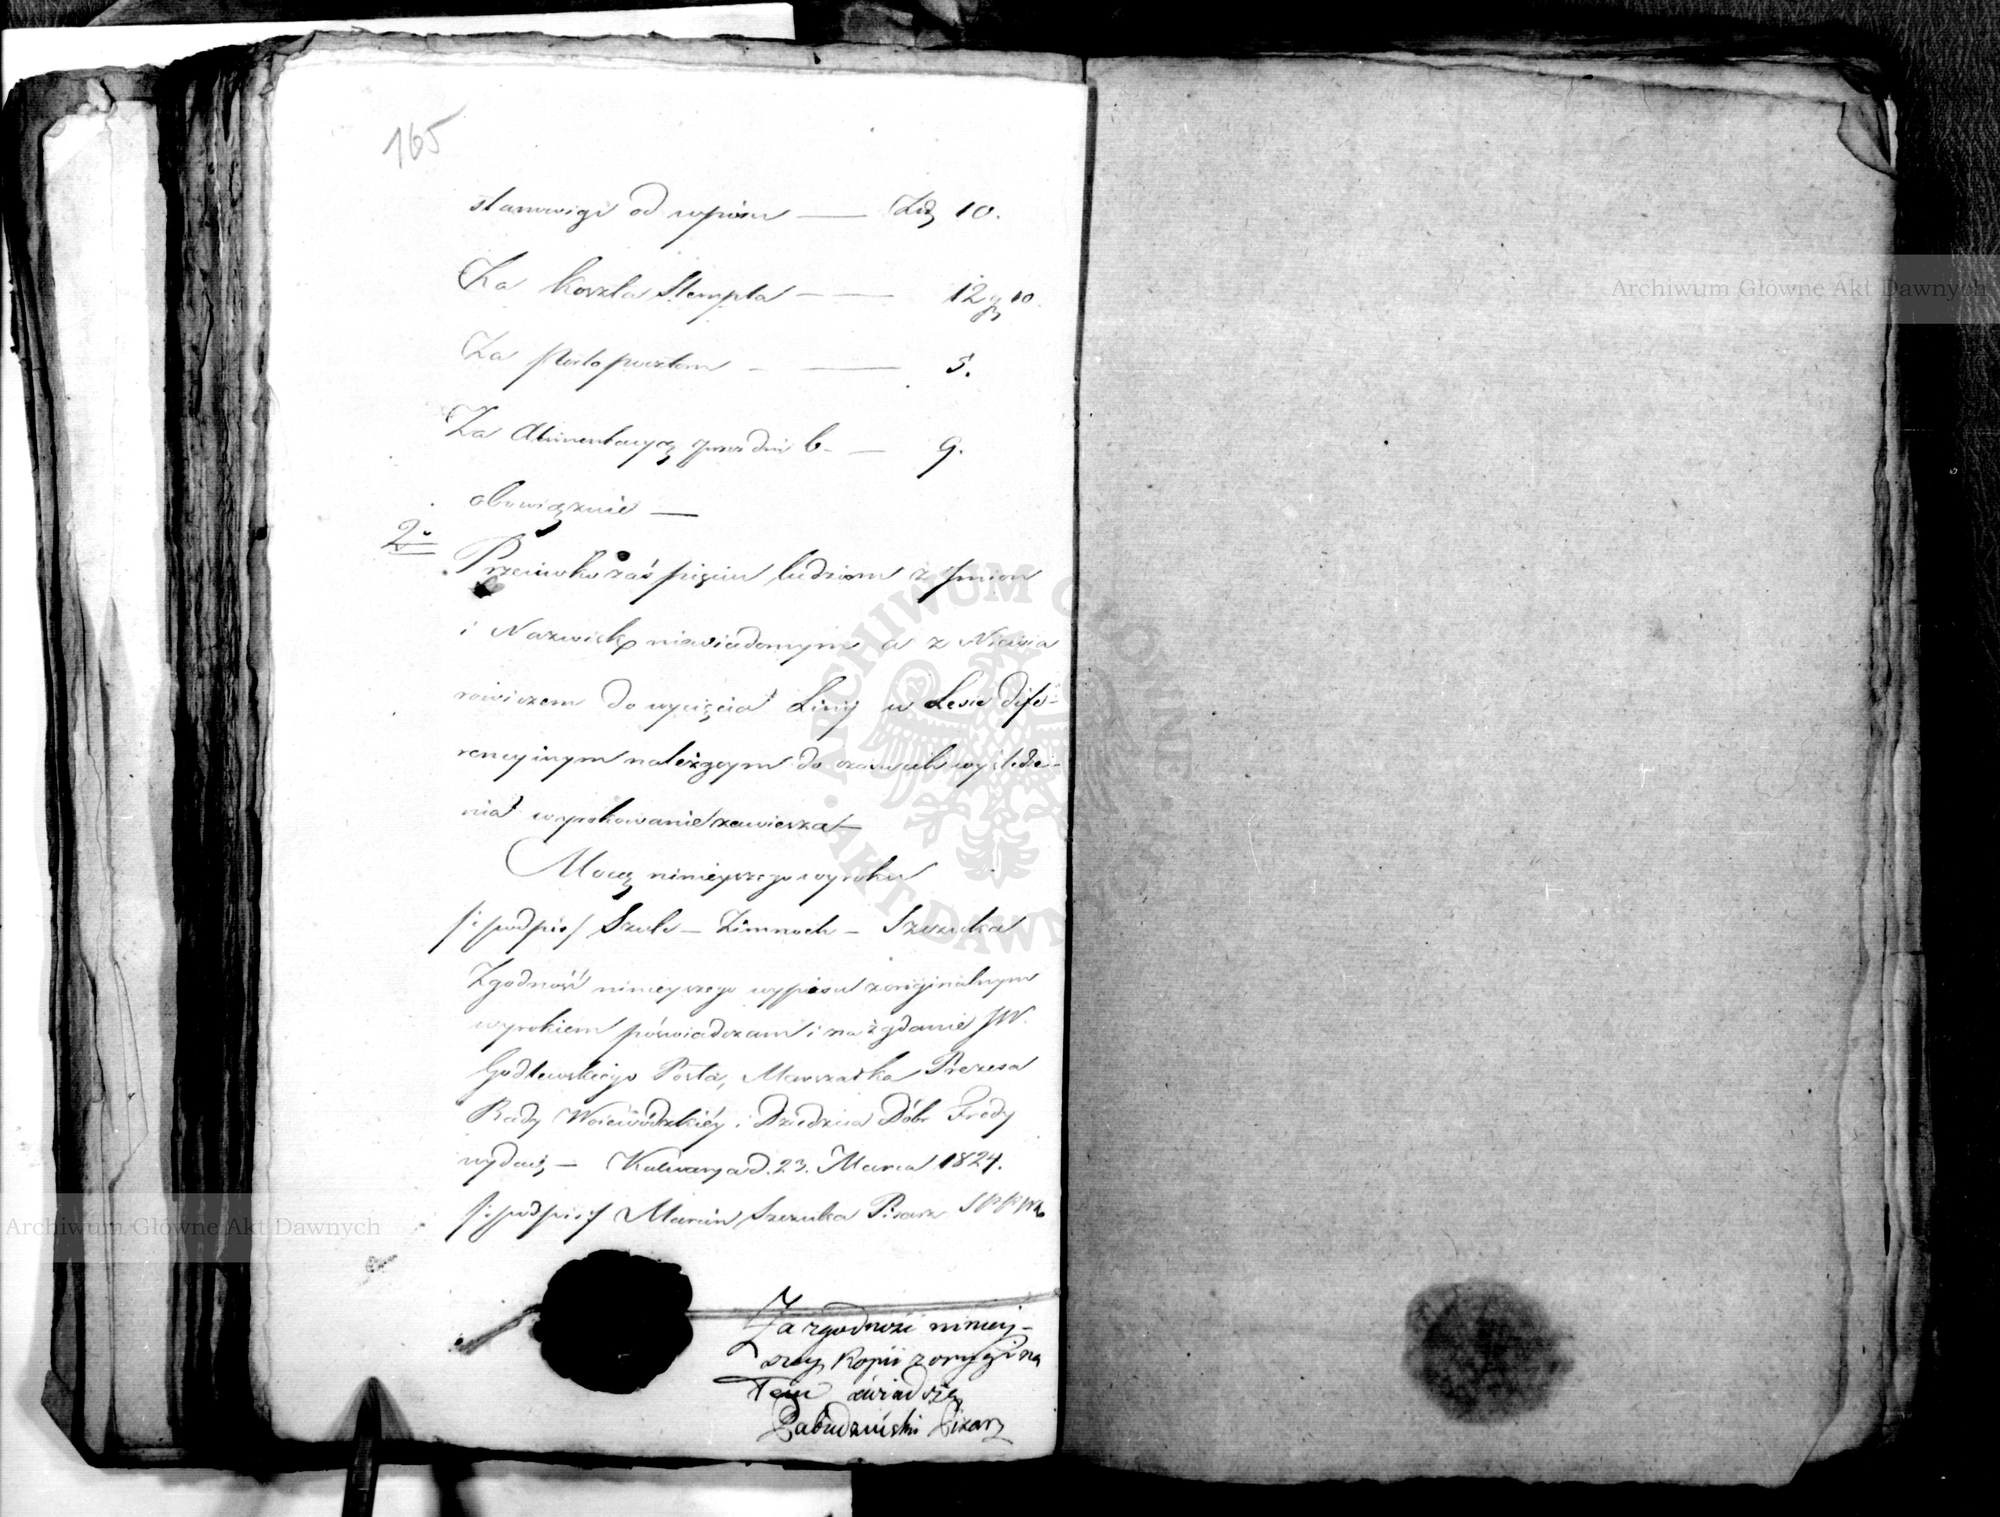 165
stanowiąc od wpisu — Złp 10.
Za koszta Stempla — — 12 gr 10.
Za Porto pocztom — — 5.
Za Alimentacyą przez dni 6. — 9.
obowiązuie —
2° Przeciwko zaś pięciu ludziom z Jmion
i Nazwisk niewiadomym a z Niewia
rowiczem do wycięcia Linij w Lesie dife-
rencyinym należącym do wyśledze-
nia wyrokowanie zawiesza —
Mocą ninieyszego wyroku
/:podpis/ Szulc — Zimnoch — Szczuka
Zgodność ninieyszego wypisu z originalnym
wyrokiem poświadczam i na żądanie JW.
Godlewskiego Posła, Marszałka Prezesa
Rady Woiewódzkiéy i Dziedzica Dóbr Fredy
wydaię — Kalwarya d. 23. Marca 1824.
/:podpis:/ Marcin Szczuka Pisarz
Za zgodność niniey-
szey Kopii z orygina
łem świadczę
Pisarz
Archiwum Główne Akt Dawnych
Archiwum Główne Akt Dawnych
ARCHIWUM GŁÓWNE AKT DAWNYCH